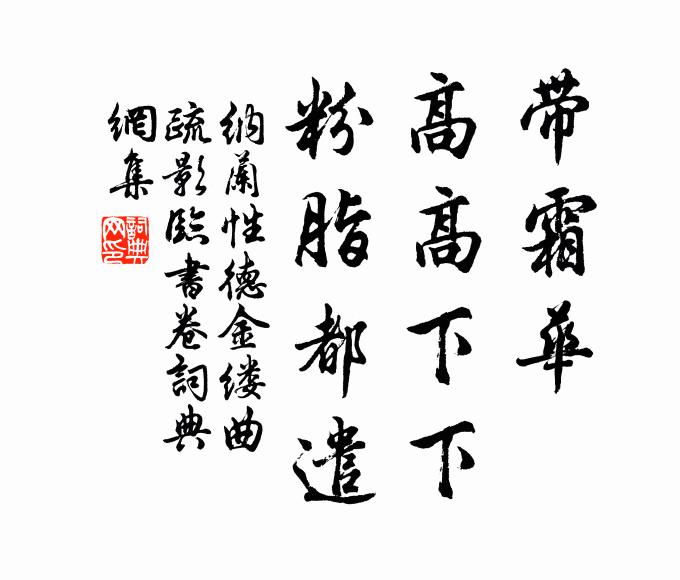 带霜華
高高下下
粉脂都遣
纳蘭性德金缕曲
疏影臨書卷詞典
網集
詞典
网印